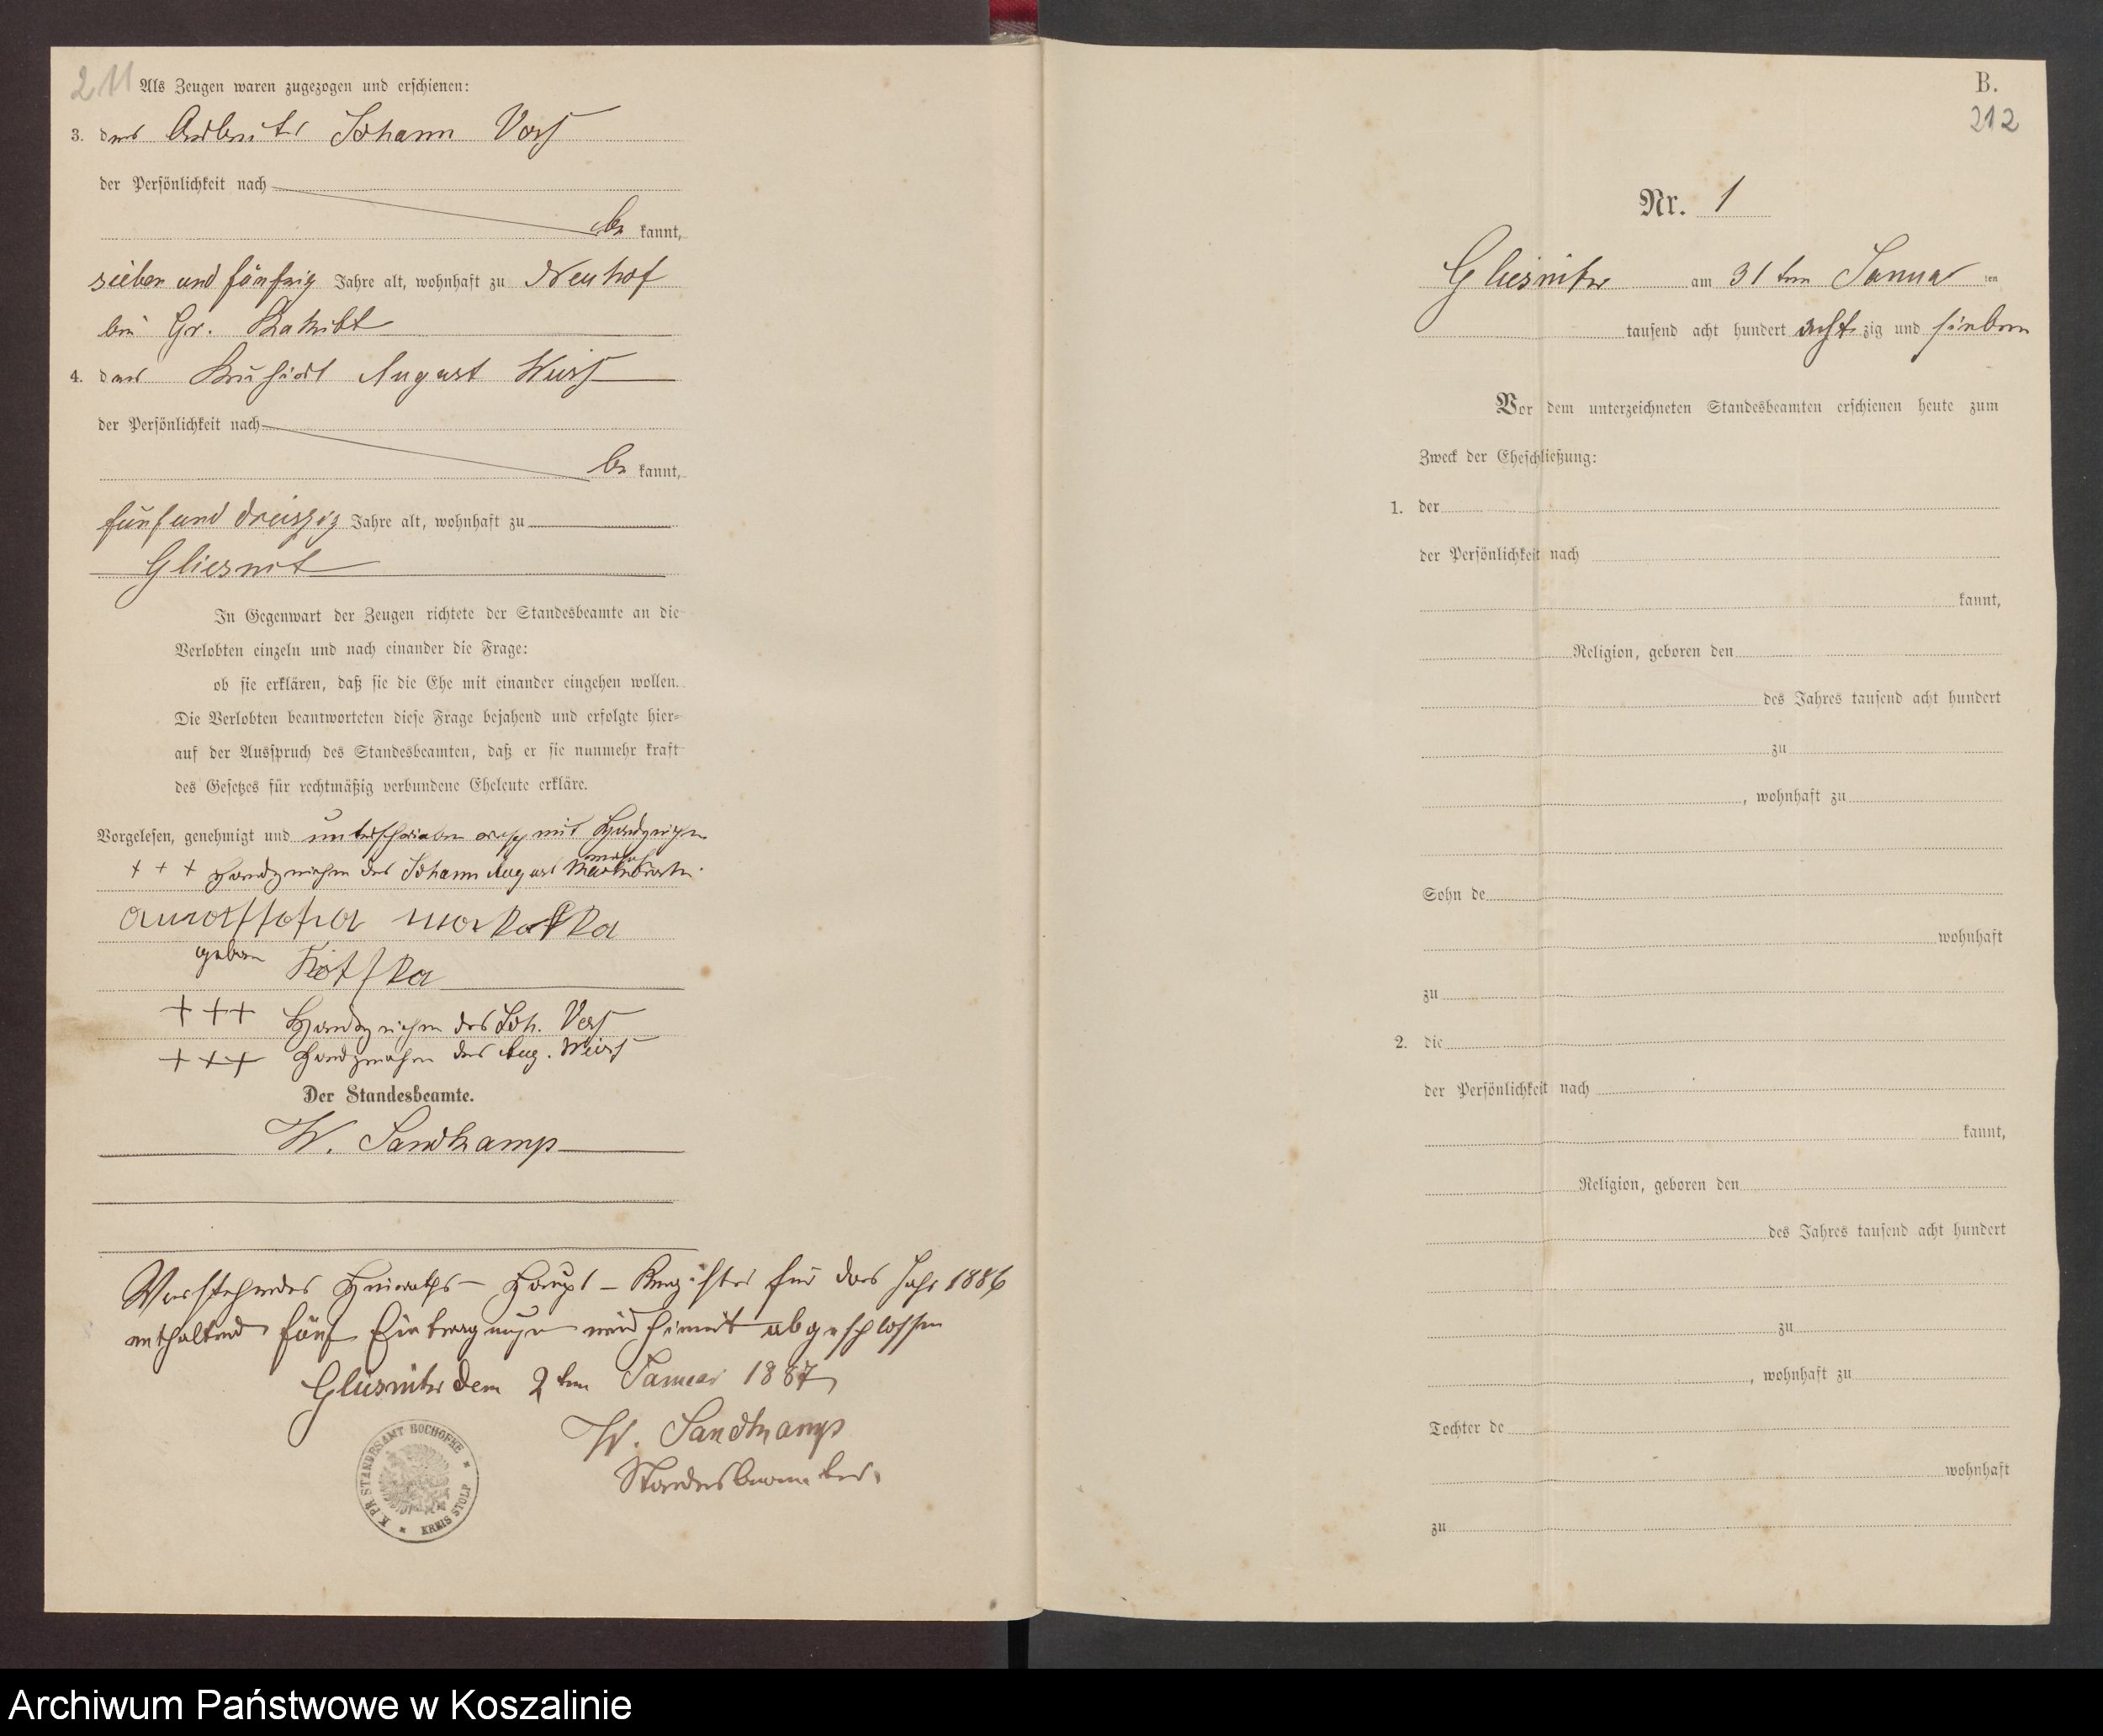 211
Als Zeugen waren zugezogen und erschienen:
3. der Arbeiter Johann Voss
der Persönlichkeit nach
be kannt,
sieben und fünfzig Jahre alt, wohnhaft zu Neuhof
bei Gr. Rakitt
4. der August Weiss
der Persönlichkeit nach
be kannt,
fünf und dreiszig Jahre alt, wohnhaft zu
Gliesnit
In Gegenwart der Zeugen richtete der Standesbeamte an die
Verlobten einzeln und nach einander die Frage:
ob sie erklären, daß sie die Ehe mit einander eingehen wollen.
Die Verlobten beantworteten diese Frage bejahend und erfolgte hier-
auf der Ausspruch des Standesbeamten, daß er sie nunmehr kraft
des Gesetzes für rechtmäßig verbundene Eheleute erkläre.
Vorgelesen, genehmigt und unterschrieben resp mit Handzeichen
+ + + Handzeichen des Johann August
geboren
+++ Handzeichen des Joh. Voss
+++ Handzeichen des Aug. Weiss
Der Standesbeamte.
W. Sandkamp
Vorstehendes Heiraths-Haupt-Register für das Jahr 1886
enthaltend fünf Eintragungen wird hiermit abgeschlossen
Gliesnitz den 2ten Januar 1887
W. Sandkamp
Standesbeamter.
K. PR. STANDESAMT BOCHOFKE * KREIS STOLP *
B.
212
Nr. 1
Gliesnitz am 31 ten Januar ten
tausend acht hundert acht zig und sieben
Vor dem unterzeichneten Standesbeamten erschienen heute zum
Zweck der Eheschließung:
1. der
der Persönlichkeit nach
kannt,
Religion, geboren den
des Jahres tausend acht hundert
zu
, wohnhaft zu
Sohn de
wohnhaft
zu
2. die
der Persönlichkeit nach
kannt,
Religion, geboren den
des Jahres tausend acht hundert
zu
, wohnhaft zu
Tochter de
wohnhaft
zu
Archiwum Państwowe w Koszalinie